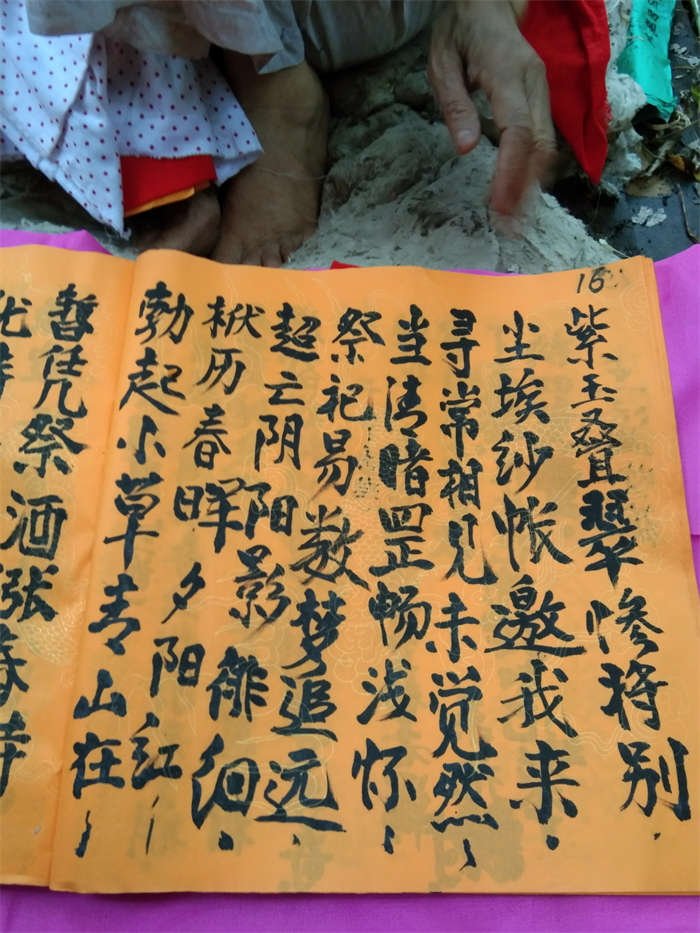 16
紫玉叠翠惨将别.
尘埃纱帐邀我来.
寻常相见未觉然、
当清暗罡畅浅怀、
祭祀易数梦追远.
超亡阴阳影徘徊.
历春晖夕阳红、
勃起小草青山在、
暂凭祭酒张春